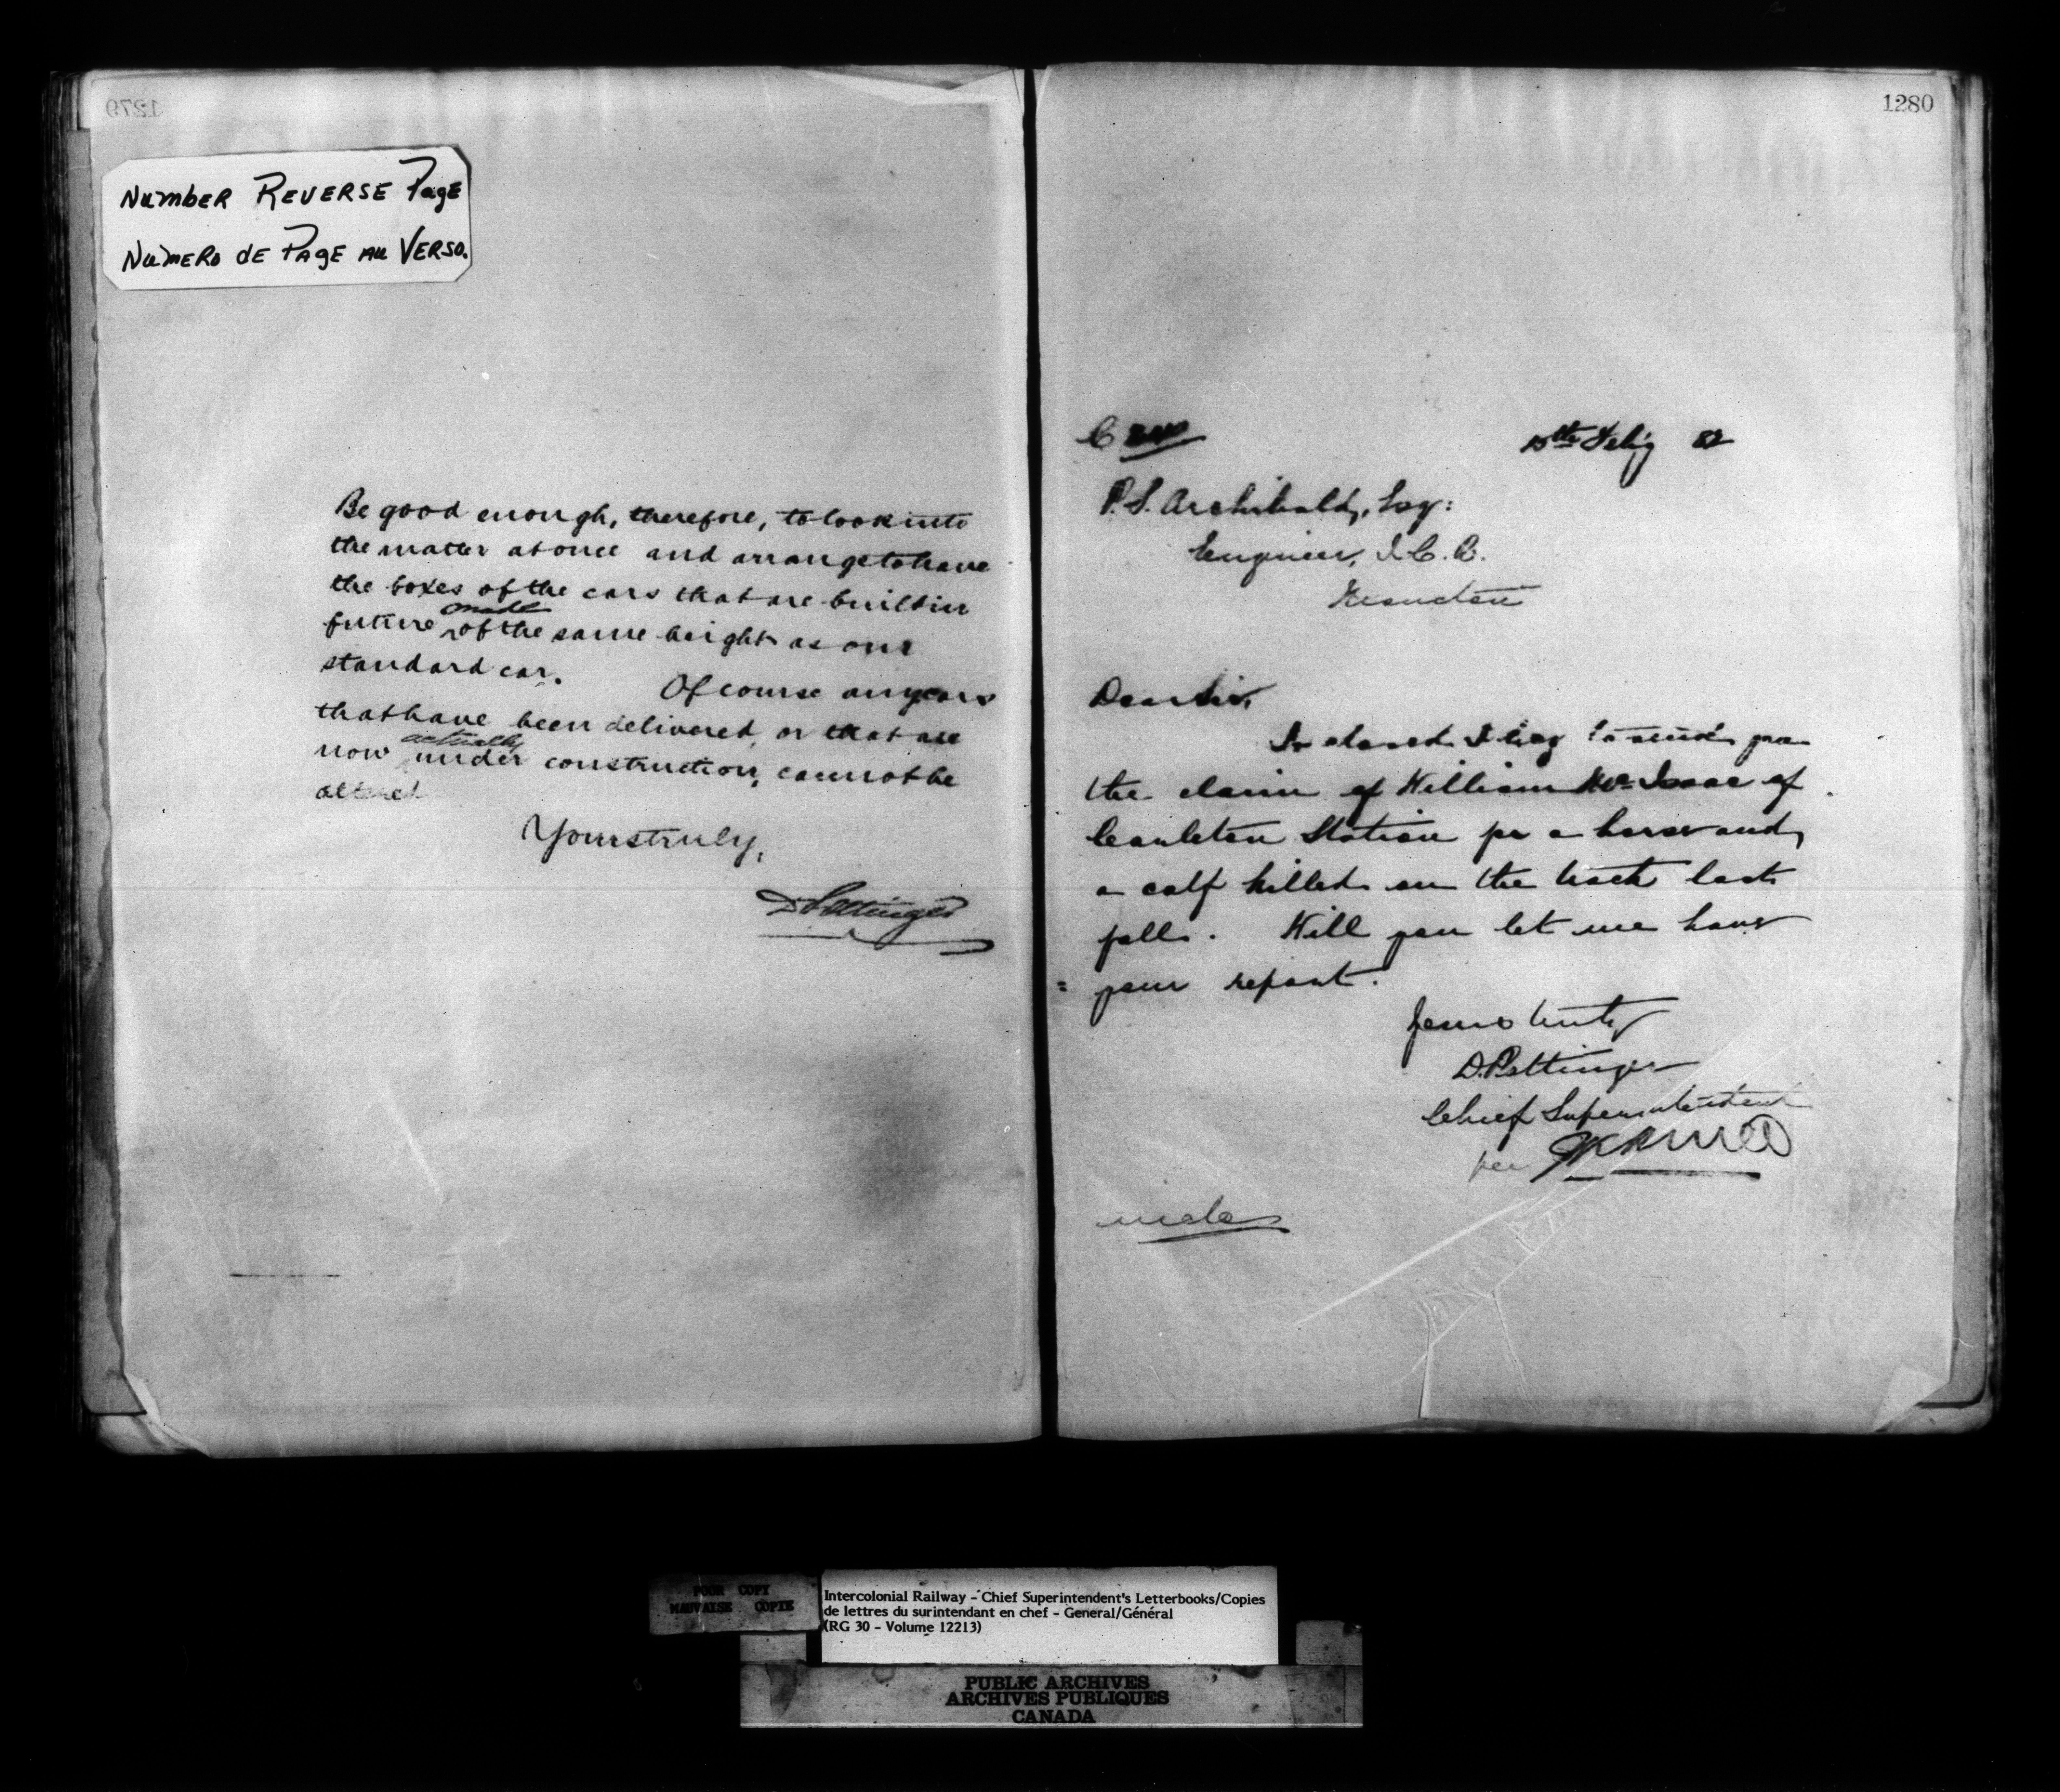 1279
Number Reverse Page
Numero de Page au Verso.
Be good enough, therefore, to look into
the matter at once and arrange to have
the boxes of the cars that are built in
made
future of the same height as our
standard car.
Of course any cars
that have been delivered, or that are
actually
now under construction, cannot be
altered
Yours truly,
D Pottinger
1280
15th Feby 82
P. S. Archibald, Esq:
Engineer, I. C. R.
Moncton
Dear Sir,
Inclosed I beg to send you
the claim of William McIsaac of
Coulston Station for a horse and
a calf killed on the track last
fall. Will you let me have
your report.
Yours truly
D. Pottinger
Chief Superintendent
per
POOR COPY
MAUVAISE COPIE
Intercolonial Railway - Chief Superintendent's Letterbooks/Copies
de lettres du surintendant en chef - General/Général
(RG 30 - Volume 12213)
PUBLIC ARCHIVES
ARCHIVES PUBLIQUES
CANADA